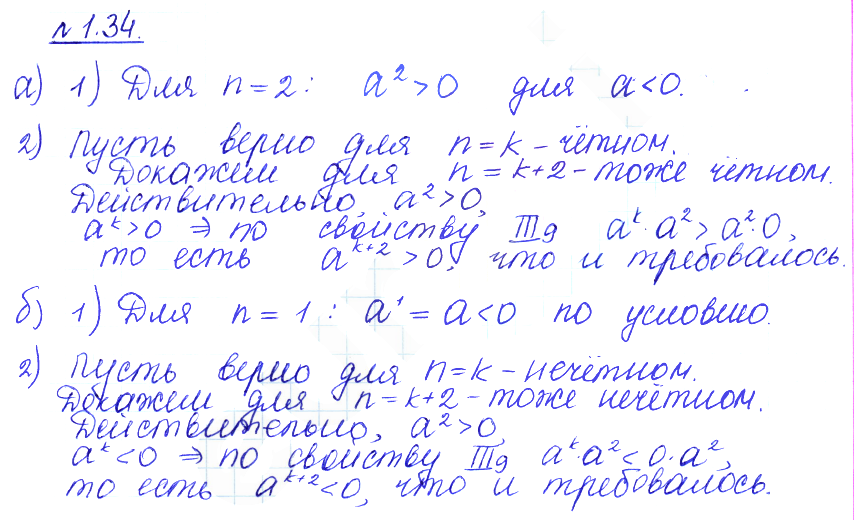 № 1.34.
а) 1) Для n = 2 : a² > 0 для a < 0.
2) Пусть верно для n = k – чётном.
Докажем для n = k+2 – тоже чётном.
Действительно, a² > 0,
aᵏ > 0 ⇒ по свойству III g aᵏ · a² > a² · 0,
то есть aᵏ⁺² > 0, что и требовалось.
б) 1) Для n = 1 : a¹ = a < 0 по условию.
2) Пусть верно для n = k – нечётном.
Докажем для n = k+2 – тоже нечётном.
Действительно, a² > 0,
aᵏ < 0 ⇒ по свойству III g aᵏ · a² < 0 · a²,
то есть aᵏ⁺² < 0, что и требовалось.